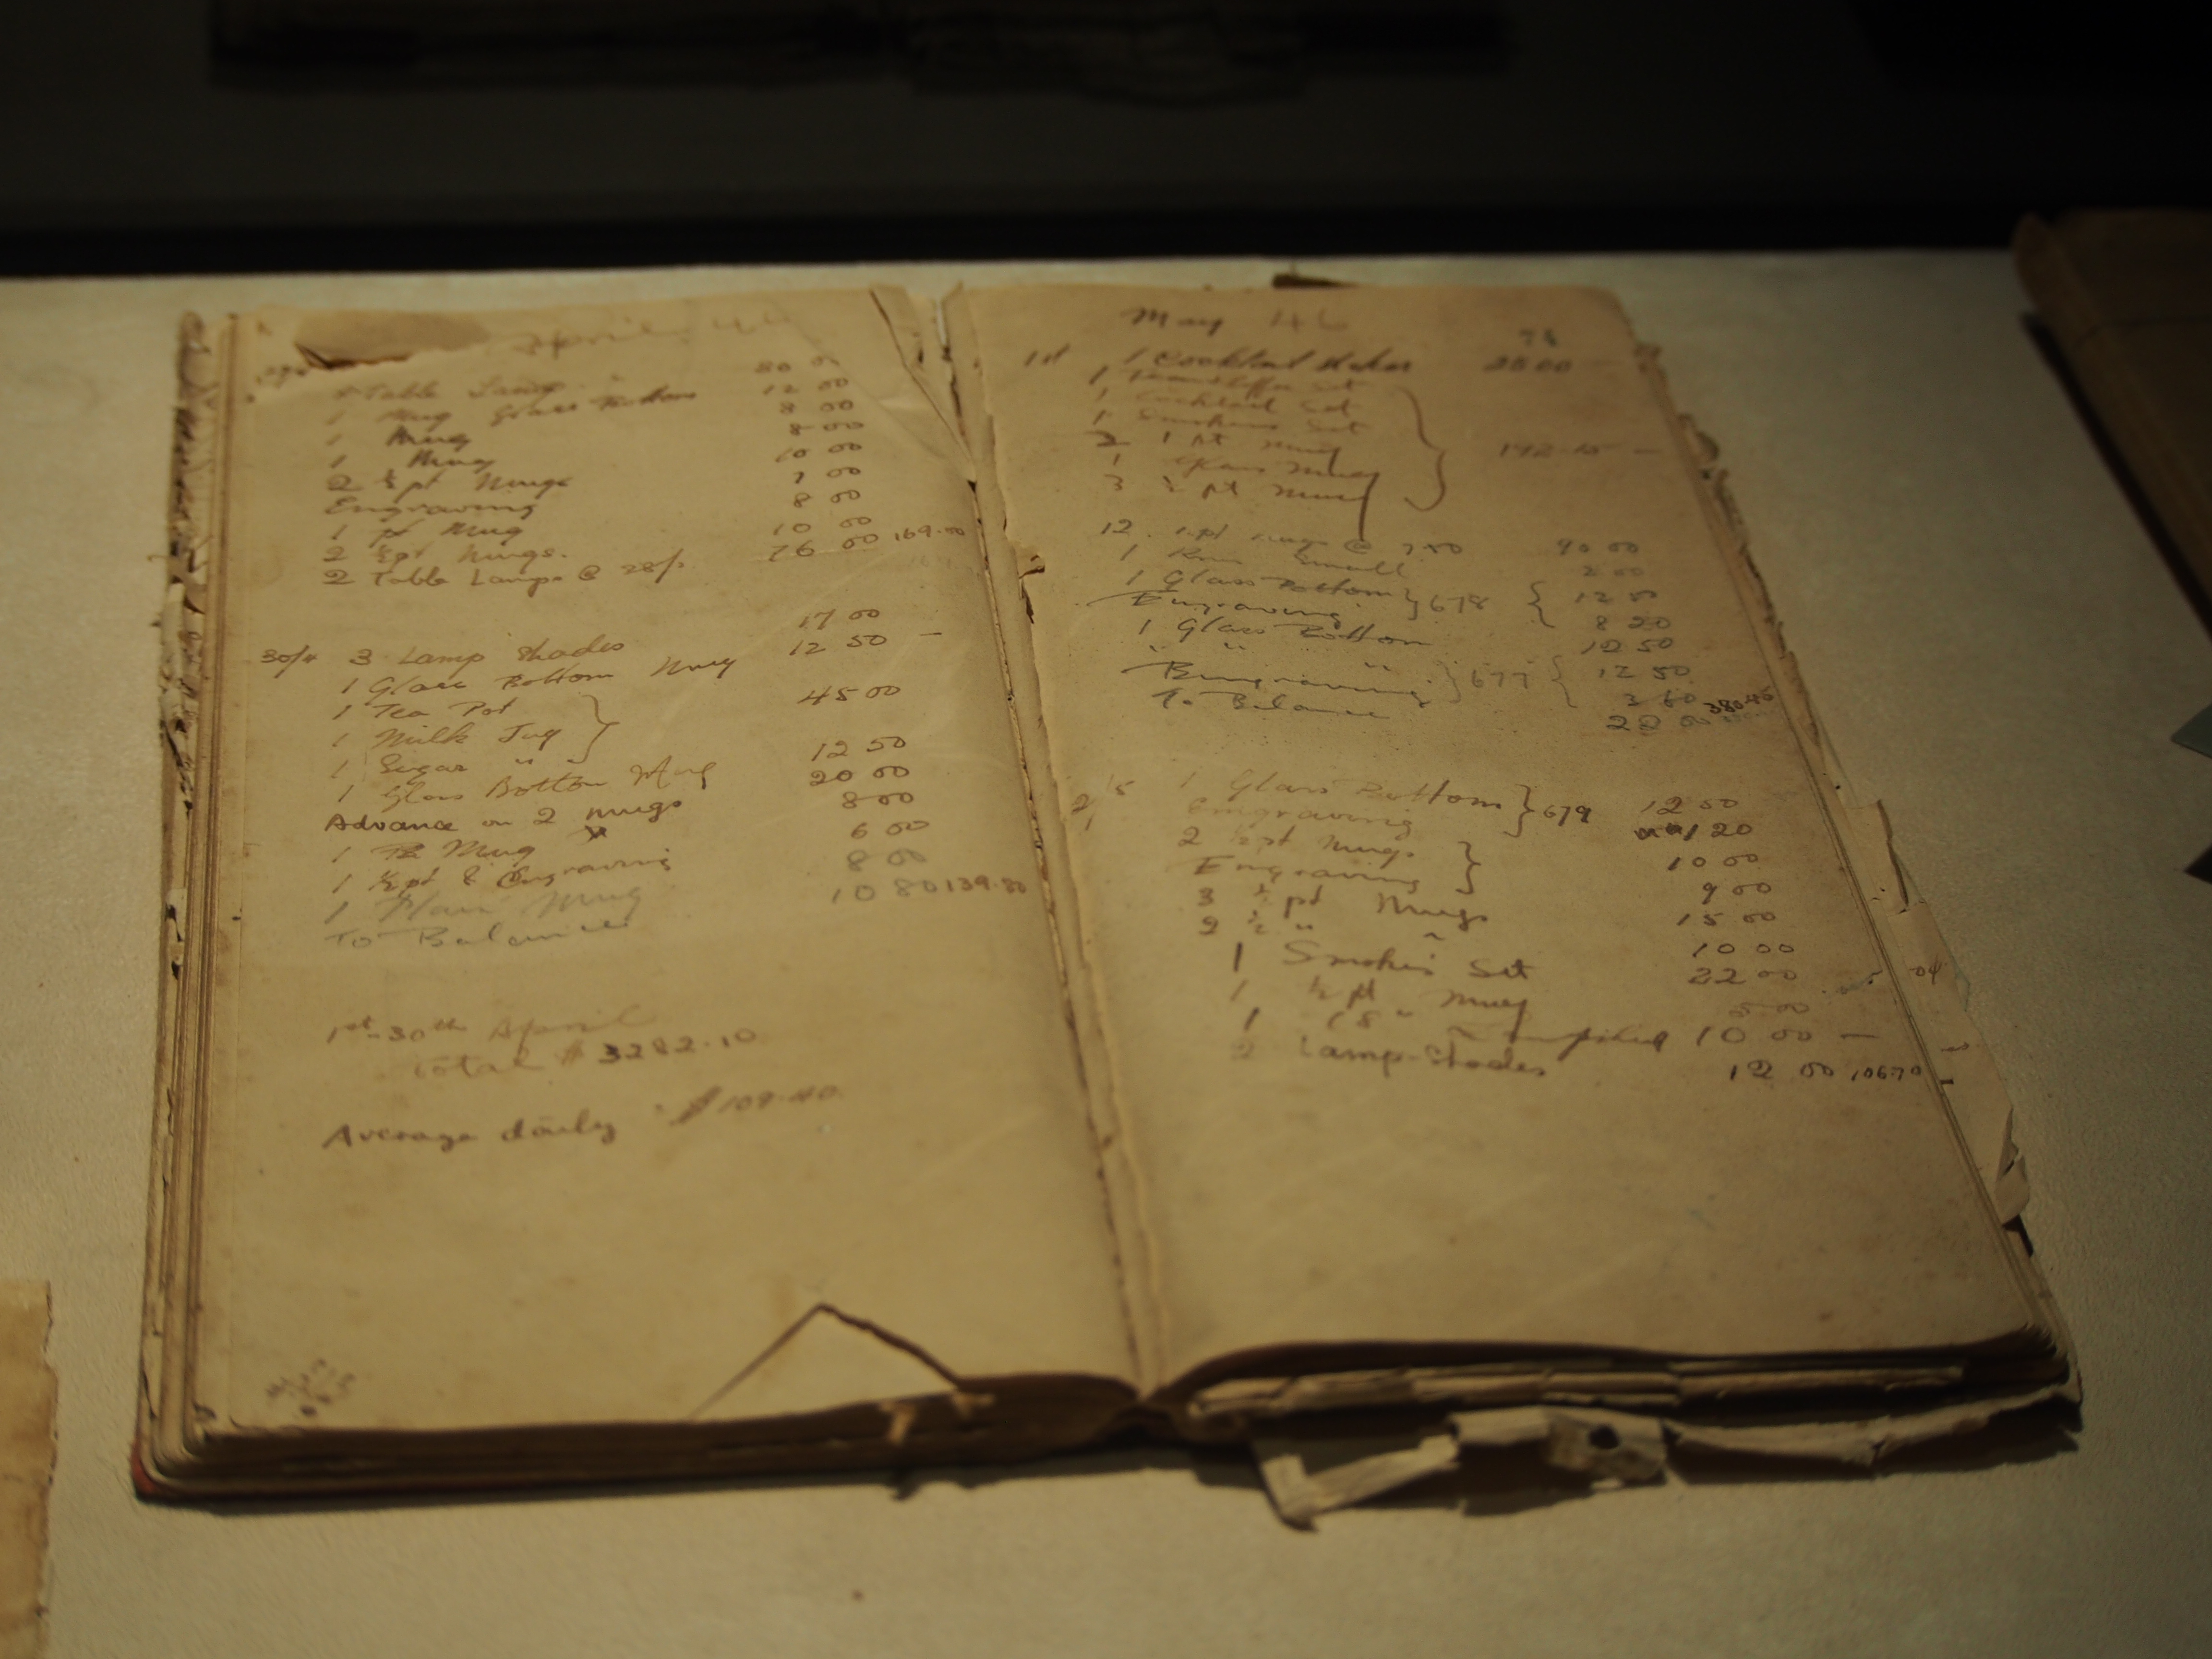 April 46
Table Lamp 80 00
1 Mug Glass Bottom 12 00
1 Mug 8 00
1 Mug 8 00
2 ½ pt Mugs 10 00
Engraving 7 00
1 pt Mug 8 00
2 ½ pt Mugs. 10 00
2 Table Lamps @ 28/- 76 00 169.00
30/4 3 Lamp Shades 17 00
1 Glass Bottom Mug 12 50 —
1 Tea Pot
1 Milk Jug } 45 00
1 Sugar "
1 Glass Bottom Mug 12 50
Advance on 2 Mugs 20 00
1 Mug 8 00
1 ½ pt & Engraving 6 00
1 Plain Mug 8 00
To Balance 10 80 139.80
1st-30th April
Total $ 3282.10
Average daily $109.40
May 46
1st 1 Cocktail shaker 28 00 —
1 Coffee Set
1 Cocktail Set
1 Smokers Set
2 1 pt Mug } 192.15 —
1 Glass Mug
3 ½ pt Mug
12 1 pt mugs @ 7 50 90 00
1 Small 2 00
1 Glass Bottom } 678 { 12 50
Engraving 8 20
1 Glass Bottom 12 50
" " " } 677 { 12 50
Engraving 3 60
To Balance 20 00 380.45
2/5 1 Glass Bottom } 679 12 50
Engraving 1 20
2 ½ pt Mugs } 10 00
Engraving 9 00
3 ½ pt Mugs 15 00
2 ½ " 10 00
1 Smokers Set 22 00
1 ½ pt Mug 5 00
1 10 00 —
2 Lamp-Shades 12 00 106.70